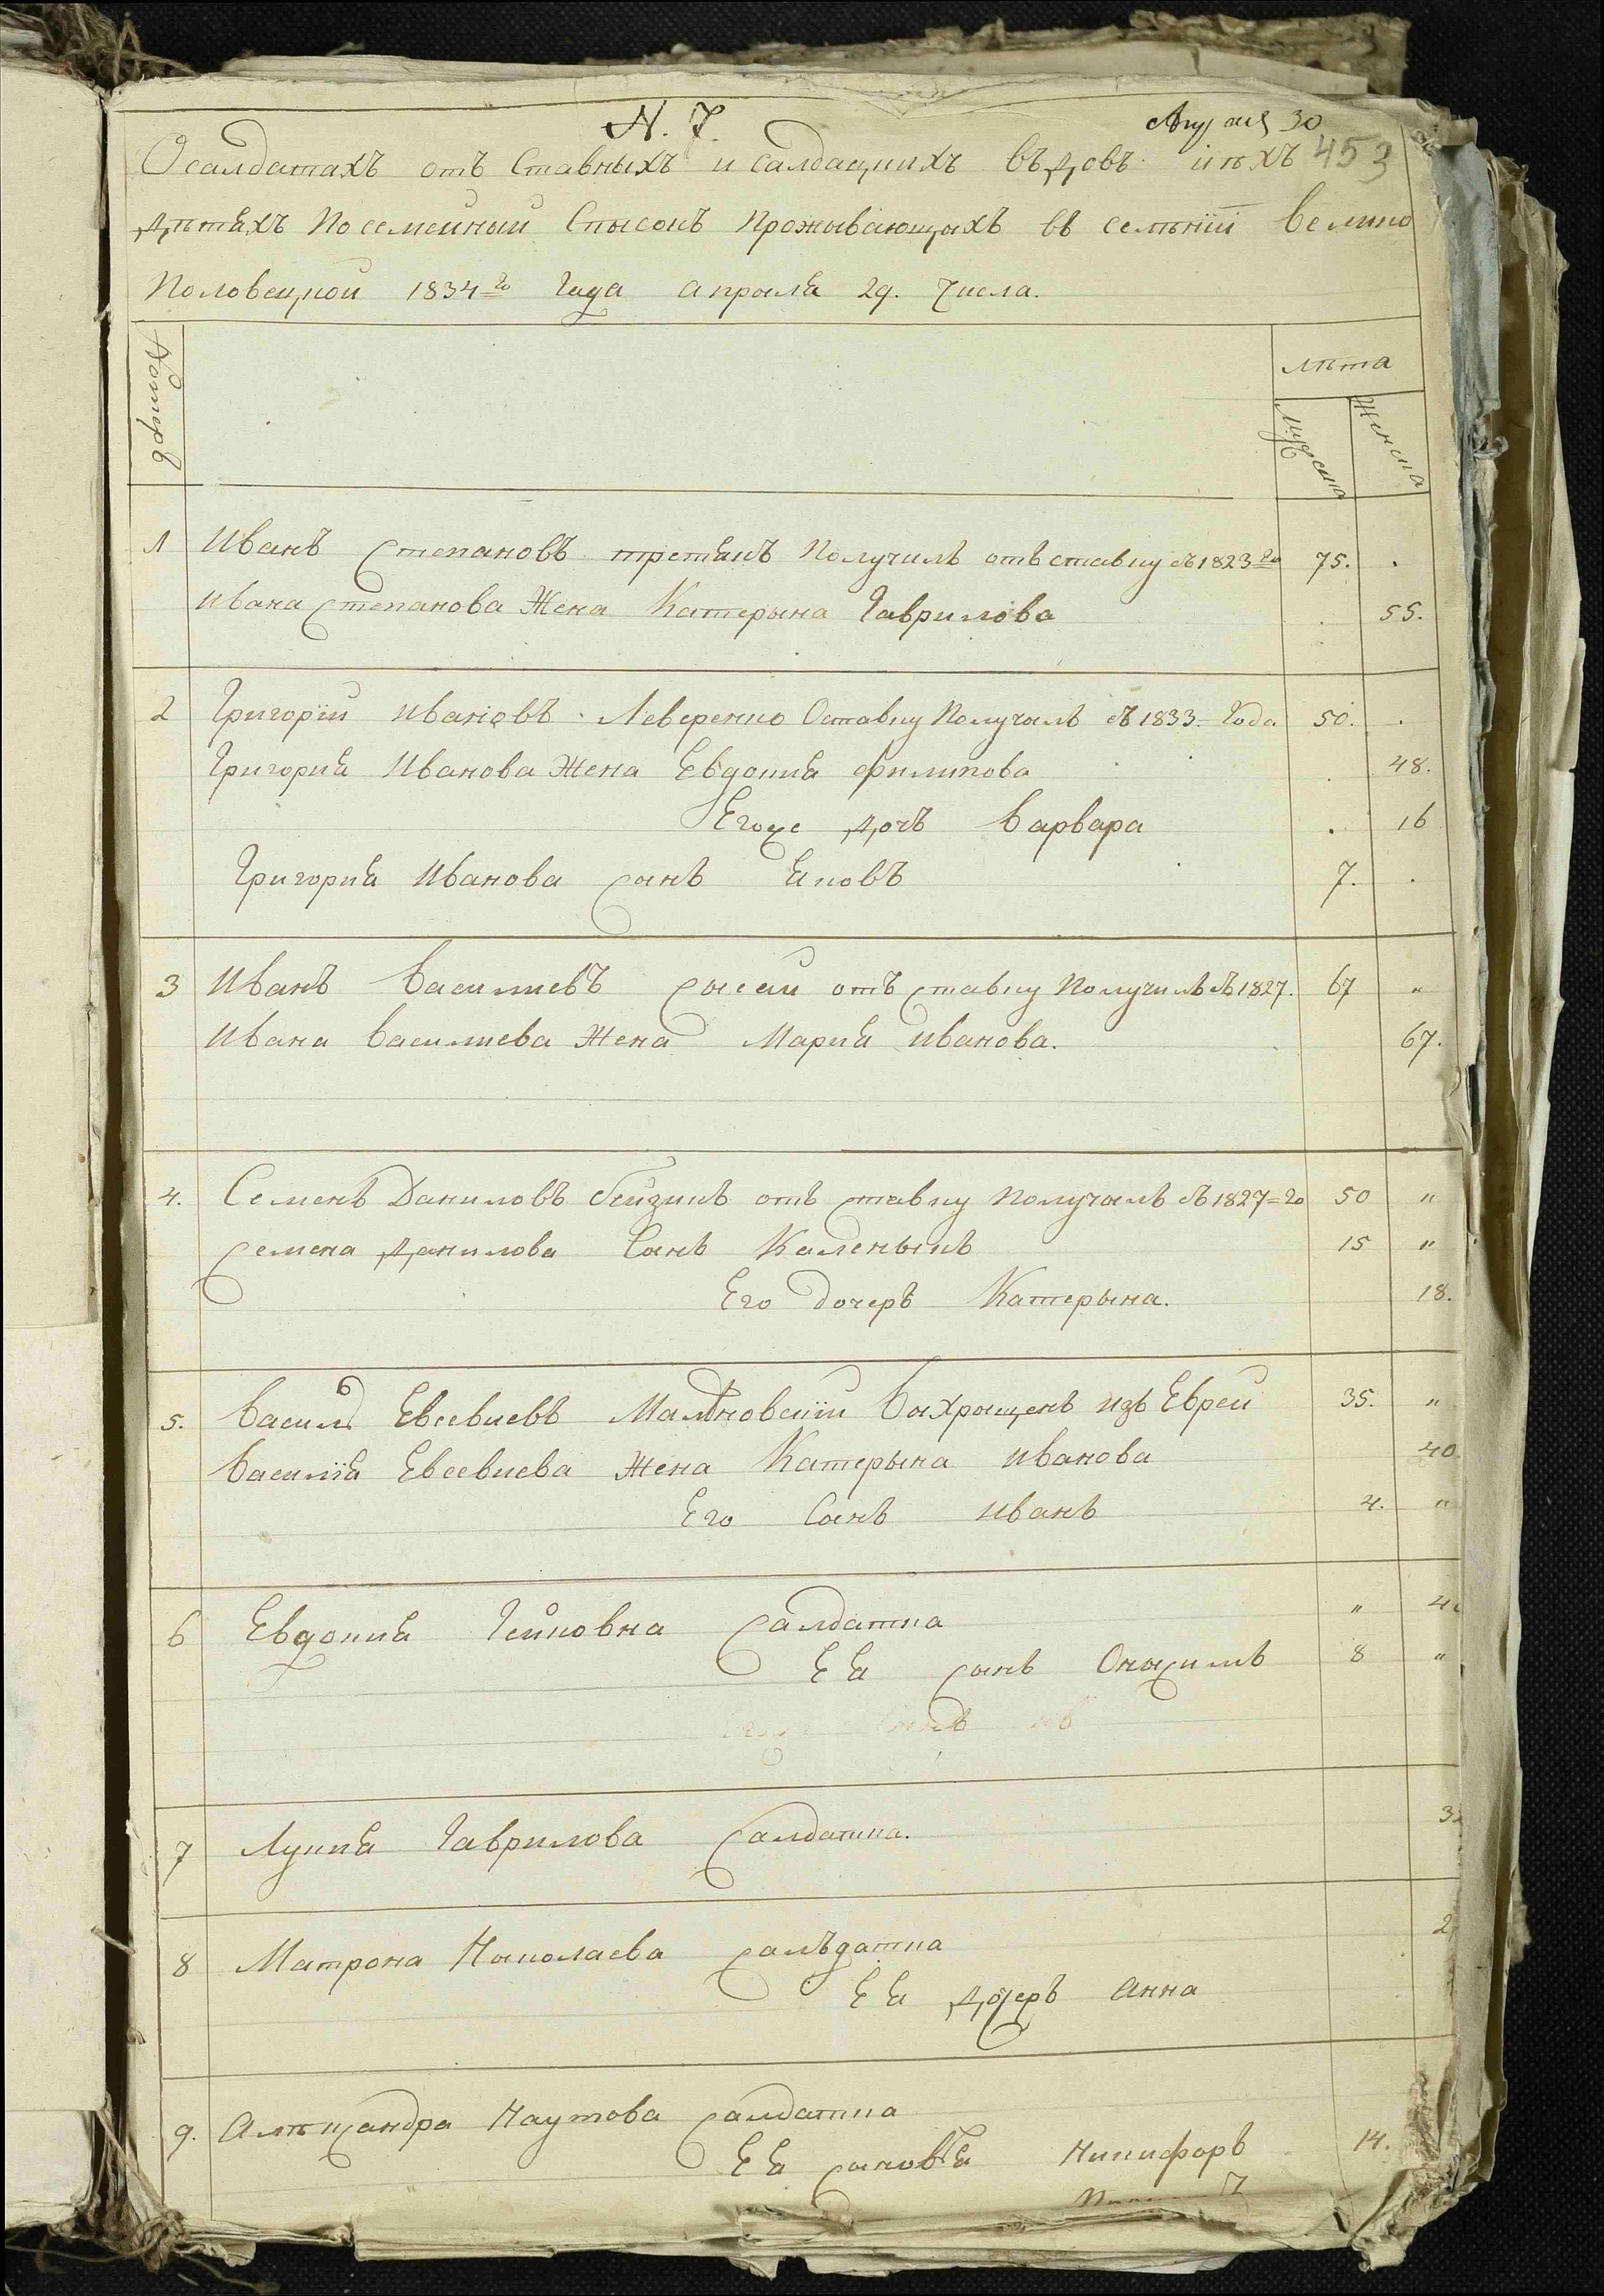 N. 7.
30
453
О салдатахъ отъ ставныхъ и салдацкихъ въдовъ ійхъ
дѣтяхъ Посемейный Спысокъ Прожывающыхъ въ селѣнїи Велико
Половецкой 1834=го Года апрыля 29. Числа.
Номиръ
лѣта
мужеска
женска
1 Иванъ Степановъ третякъ Получилъ отъ ставку съ 1823=го 75. .
Ивана Степанова Жена Катерына Гаврилова . 55.
2 Григорїй Ивановъ Леверенко Оставку Получылъ съ 1833. Года 50. .
Григория Иванова Жена Евдокия Филипова . 48.
Егоже дочъ Варвара . 16
Григория Иванова сынъ Яковъ 7. .
3 Иванъ Василиевъ отъ ставку Получилъ съ 1827. 67 "
Ивана Василиева Жена Мария Иванова. 67.
4. Семенъ Даниловъ отъ ставку Получылъ съ 1827=го 50 "
Семена Данилова Сынъ Каленыкъ 15 "
Его дочеръ Катерына. 18.
5. Василь Евсевиевъ Выхрыщенъ изъ Еврей 35. "
Василїя Евсевиева Жена Катерына Иванова 40.
Его Сынъ Иванъ 4. "
6 Евдокия Салдатка "
Ея сынъ Онысимъ 8 "
7 Лукия Гаврилова Салдатка.
8 Матрона Николаева Салъдатка
Ея дочеръ Анна
9. Алѣксандра Наумова Салдатка
Ея сыновъя Никифоръ 14.